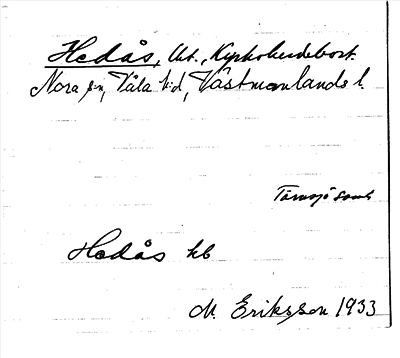 Hedås, Ut., Kyrkoherdebost.
Nora s:n, Våla h:d, Västmanlands l.
Tärnsjö samh
Hedås kb
M. Eriksson 1933